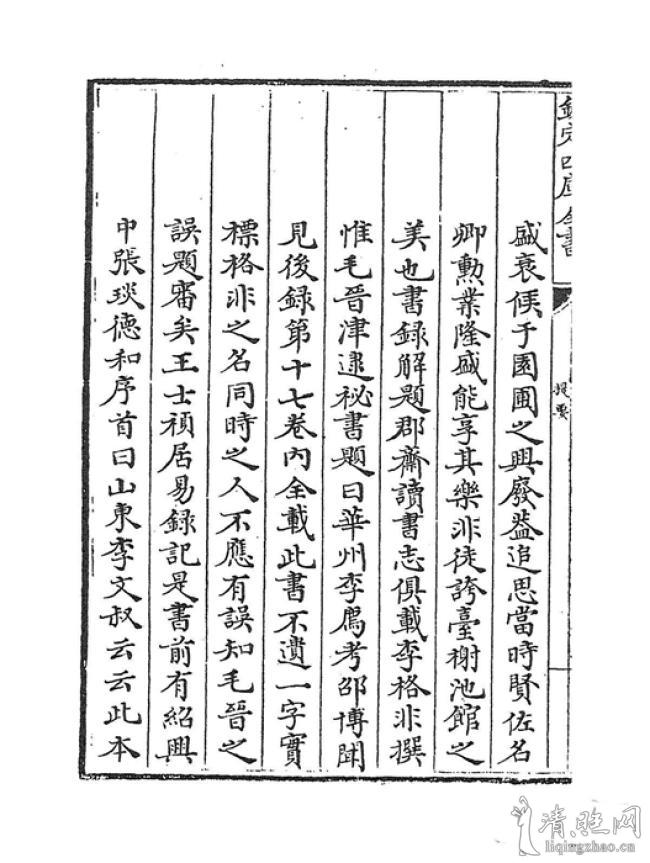 欽定四庫全書
提要
盛衰候于園圃之興廢葢追思當時賢佐名
卿勲業隆盛能享其樂非徒誇臺榭池館之
美也書録解題郡齋讀書志俱載李格非撰
惟毛晉津逮祕書題曰華州李廌考邵博聞
見後録第十七卷內全載此書不遺一字實
標格非之名同時之人不應有誤知毛晉之
誤題審矣王士禎居易録記是書前有紹興
中張琰德和序首曰山東李文叔云云此本
清照网
liqingzhao.cn